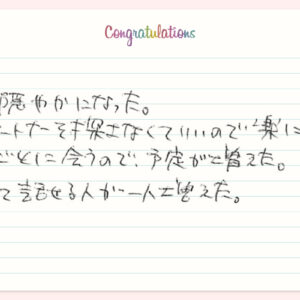 Congratulations
穏やかになった。
ートナーを探さなくていいので楽に
ごとに会うので、予定が増えた。
て話せる人が一人増えた。